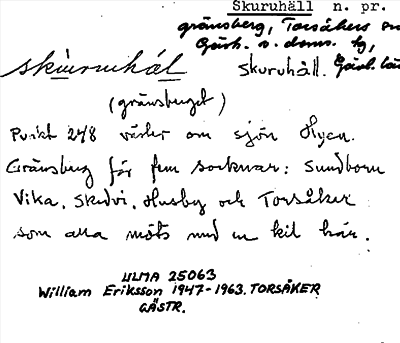 Skuruhäll n. pr.
gränsberg, Torsåkers sn
Gästr. s. doms. tg,
skúruhál Skuruhäll. Gävl. län
(gränsberget)
Punkt 248 väster om sjön Hyen.
Gränsberg för fem socknar: Sundborn
Vika, Skedvi, Husby och Torsåker
som alla möts med en kil här.
ULMA 25063
William Eriksson 1947-1963. TORSÅKER
GÄSTR.